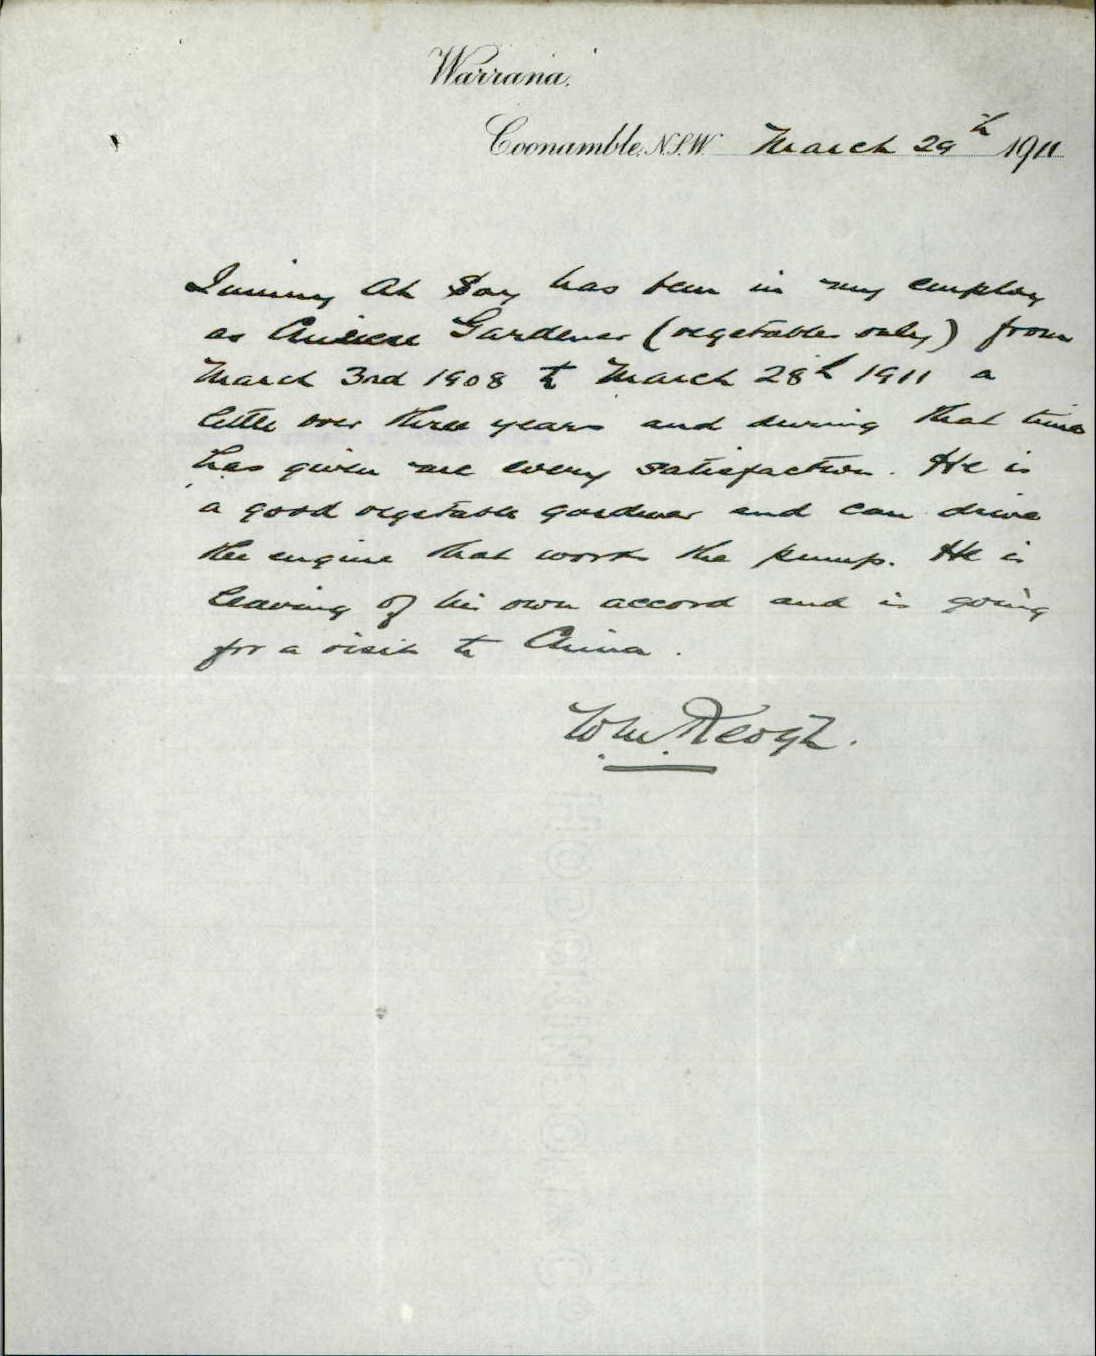 Warrana.
Coonamble, N.S.W. March 29th 1911
Jimmy Ah Say has been in my employ
as Chinese Gardener (vegetables only) from
March 3rd 1908 to March 28th 1911 a
little over three years and during that time
has given me every satisfaction. He is
a good vegetable gardener and can drive
the engine that works the pump. He is
leaving of his own accord and is going
for a visit to China.
Wm Keogh.